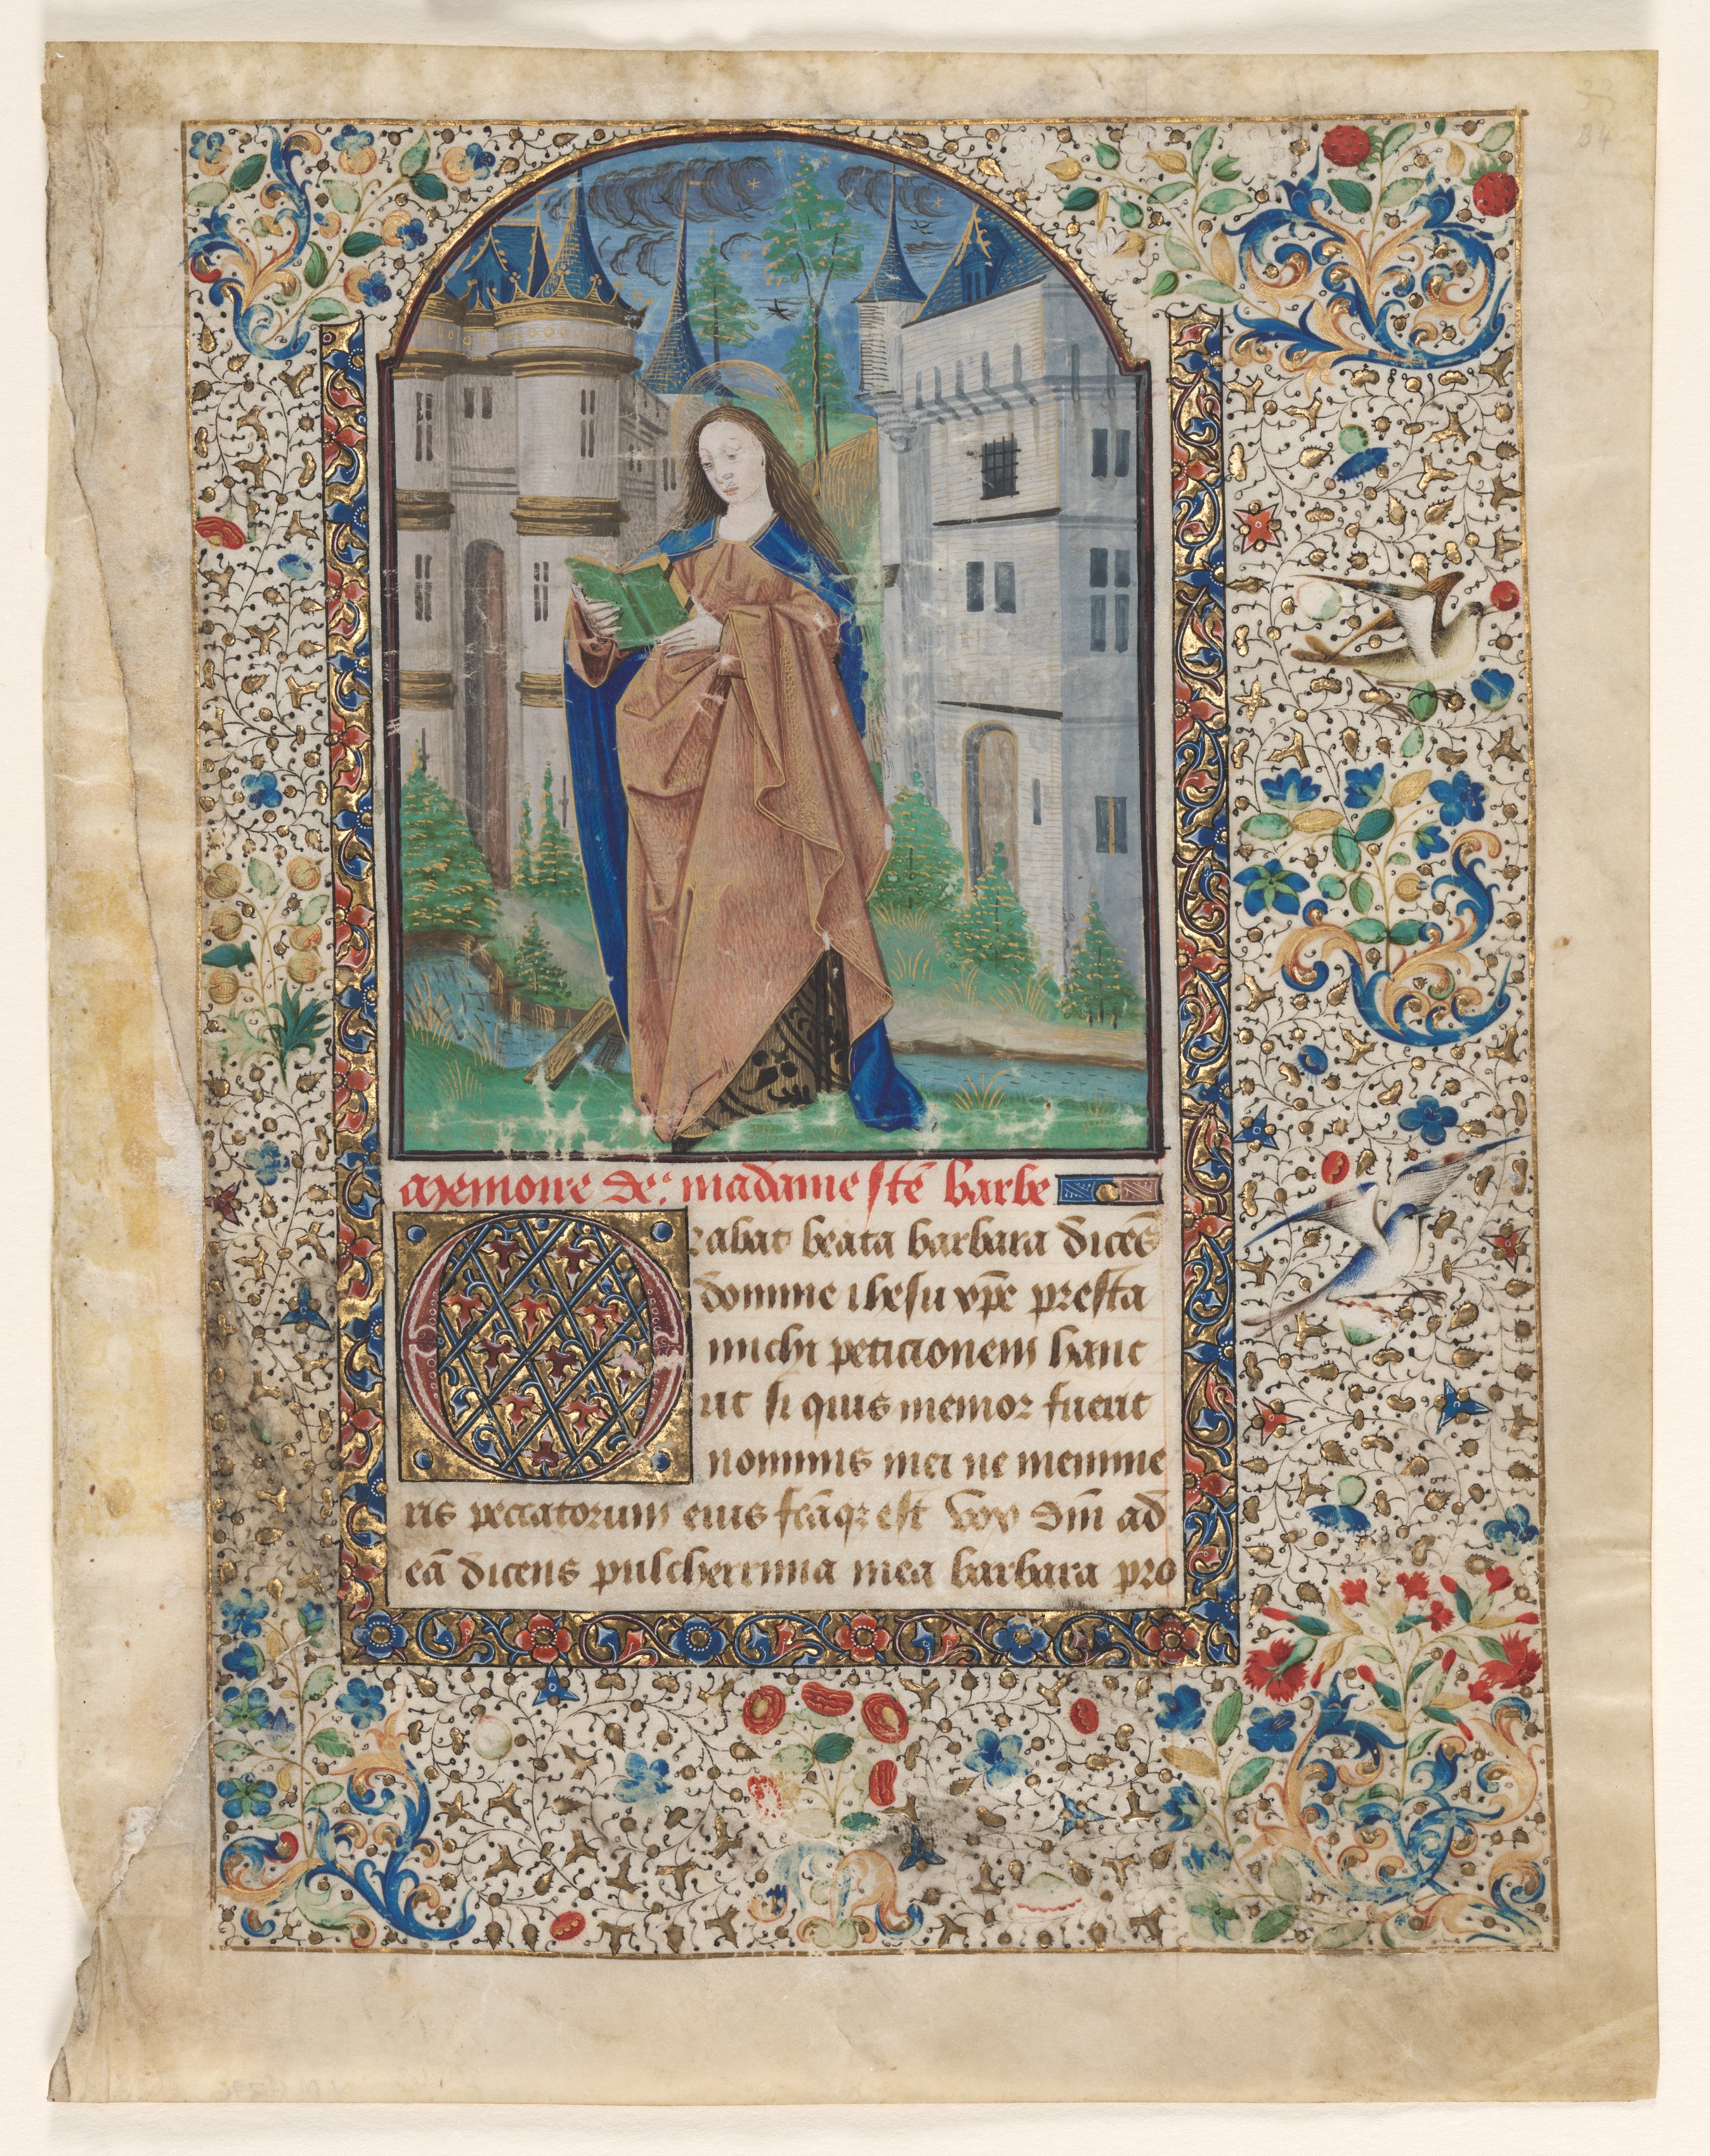 34
Memoire de: madame ste barbe
Orabat beata barbara dices
domine ihesu xpe presta
michi peticionem hanc
ut si quis memor fuerit
nominis mei ne memine
ris peccatorum eius scaqz est vox dni ad
ea dicens pulcherrima mea barbara pro